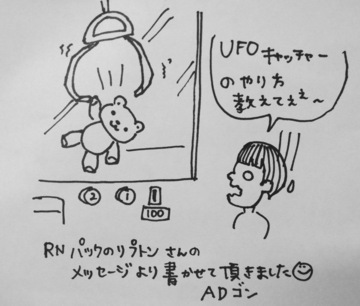 UFOキャッチャー
のやり方
教えてぇぇ～
② ①
100
RN パックのリプトン さんの
メッセージより書かせて頂きました☺
ADゴン